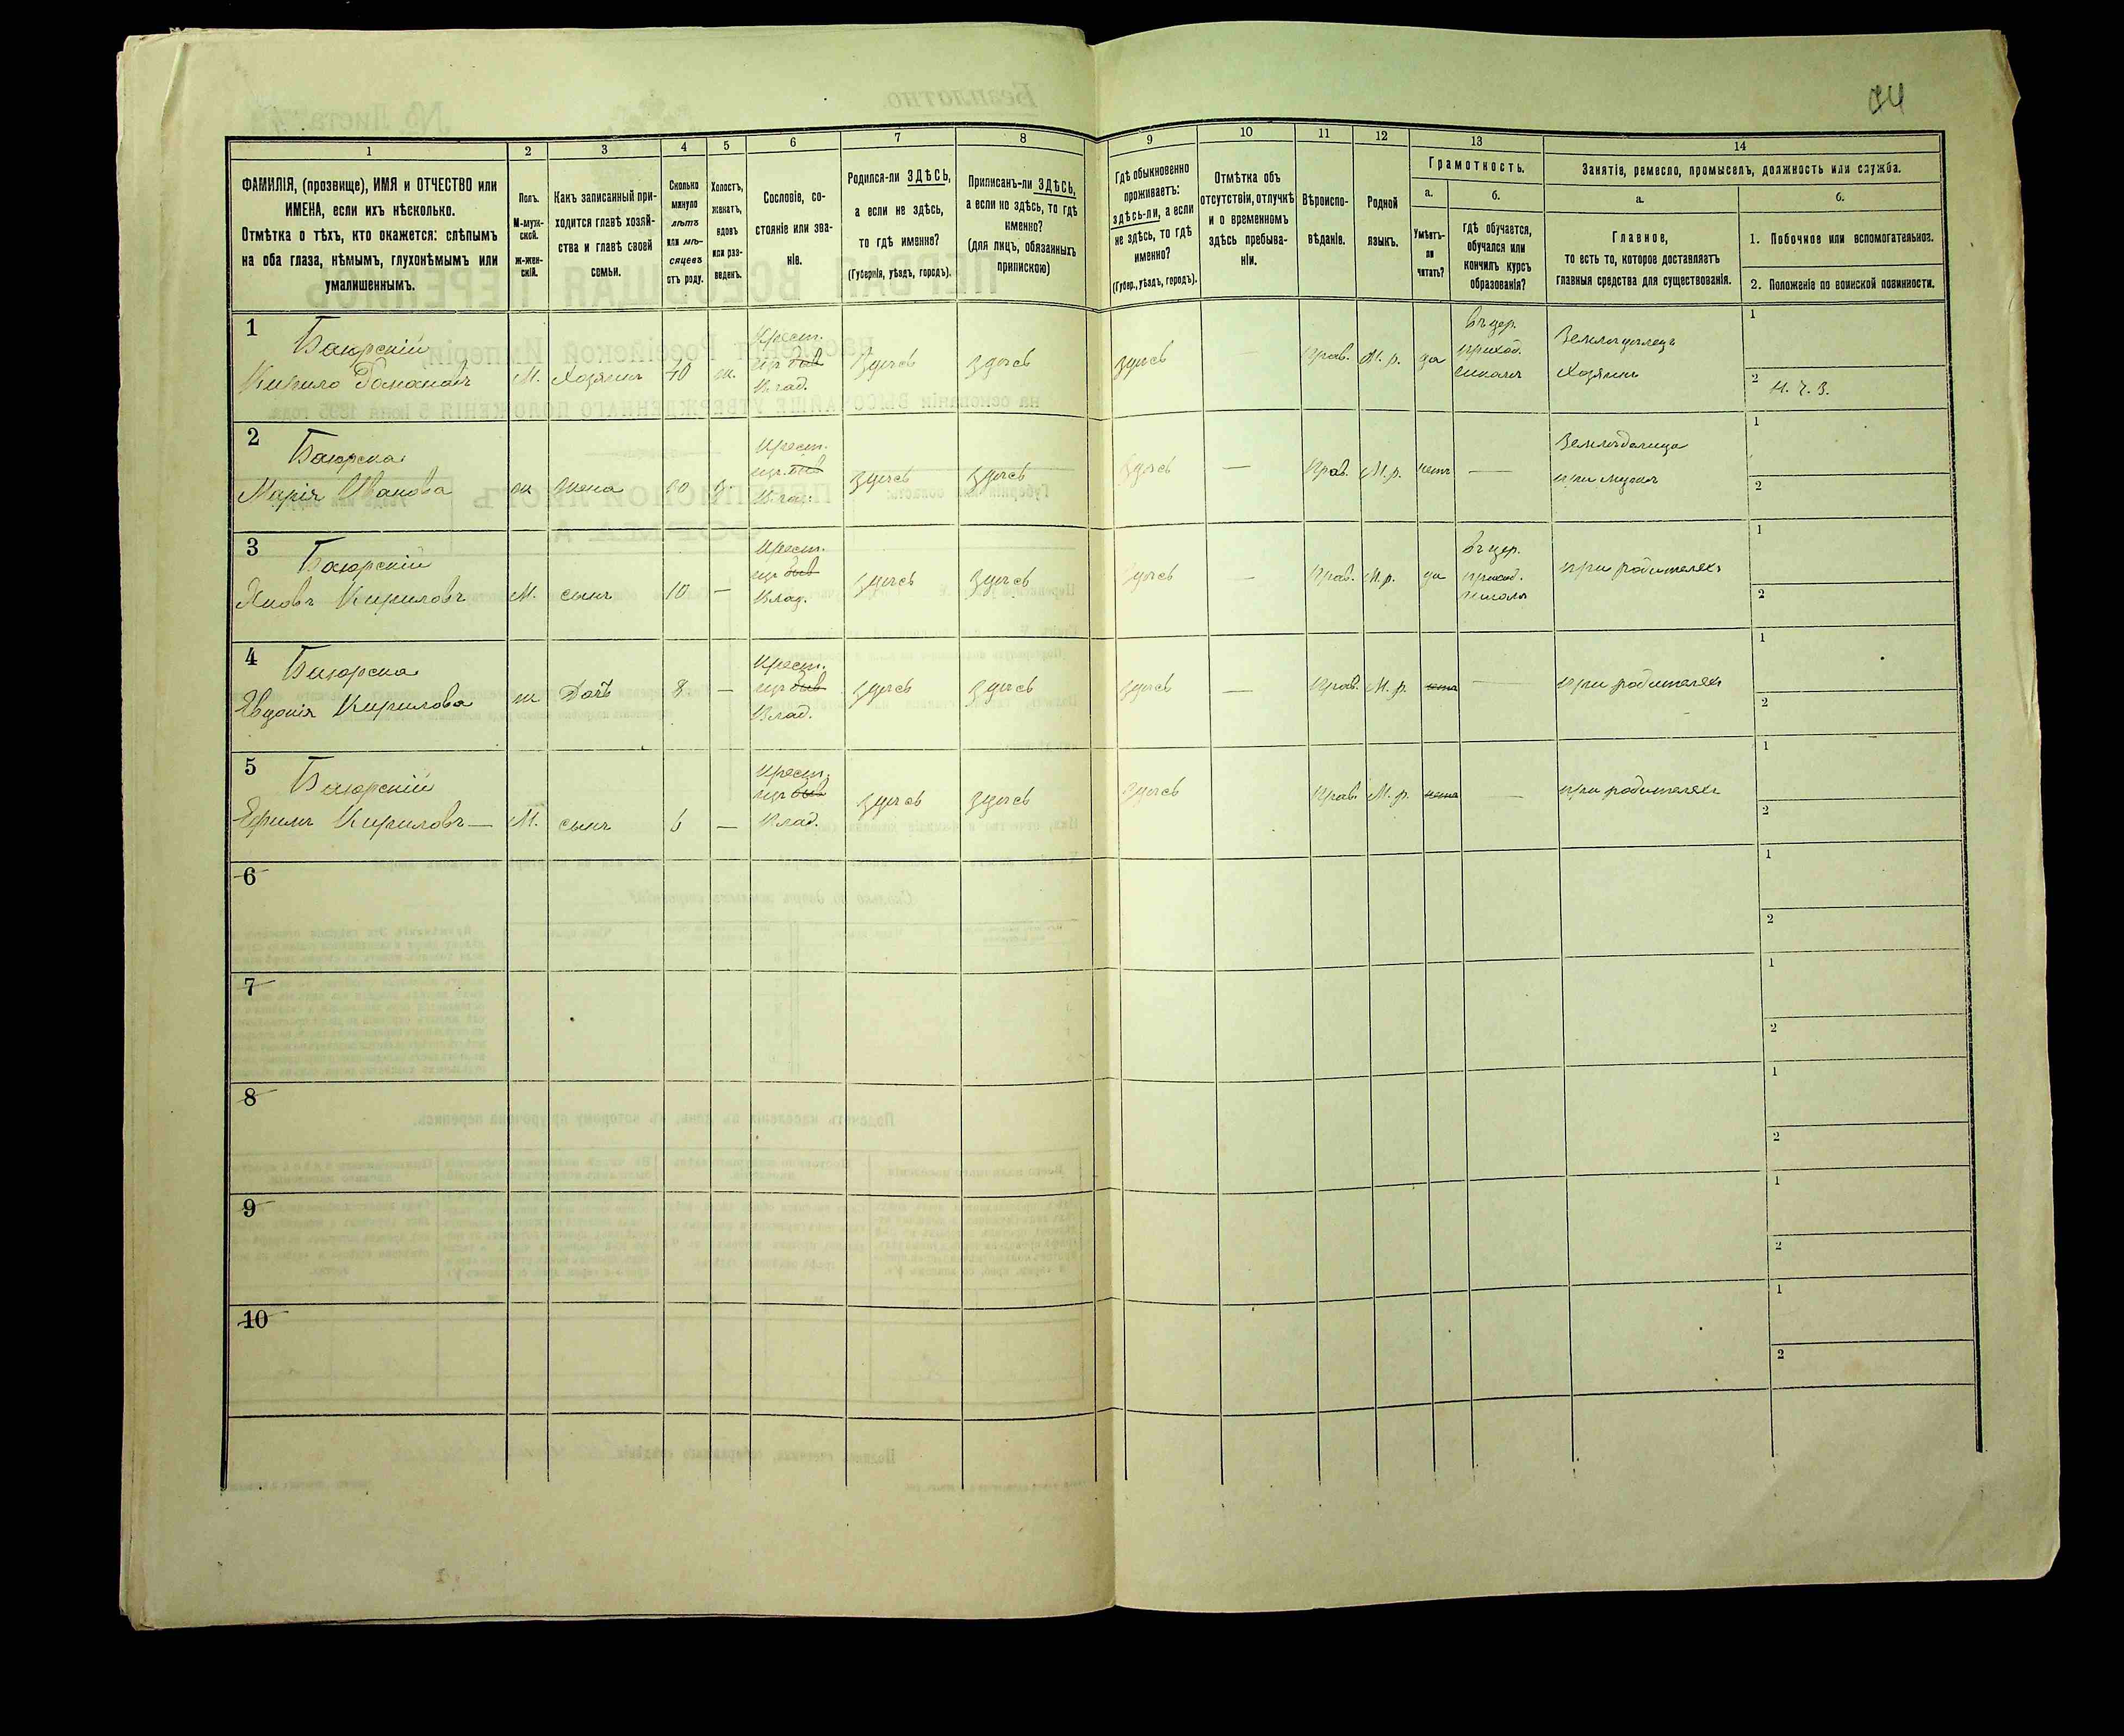 1
2
3
4
5
6
7
8
9
10
11
12
13
14
ФАМИЛІЯ, (прозвище), ИМЯ и ОТЧЕСТВО или
ИМЕНА, если ихъ нѣсколько.
Отмѣтка о тѣхъ, кто окажется: слѣпымъ
на оба глаза, нѣмымъ, глухонѣмымъ или
умалишеннымъ.
Полъ.
М-муж-
ской.
ж-жен-
скій.
Какъ записанный при-
ходится главѣ хозяй-
ства и главѣ своей
семьи.
Сколько
минуло
лѣтъ
или мѣ-
сяцевъ
отъ роду.
Холостъ,
женатъ,
вдовъ
или раз-
веденъ.
Сословіе, со-
стояніе или зва-
ніе.
Родился-ли ЗДѢСЬ,
а если не здѣсь,
то гдѣ именно?
(Губернія, уѣздъ, городъ).
Приписанъ-ли ЗДѢСЬ,
а если не здѣсь, то гдѣ
именно?
(для лицъ, обязанныхъ
припискою)
Гдѣ обыкновенно
проживаетъ:
здѣсь-ли, а если
не здѣсь, то гдѣ
именно?
(Губер., уѣздъ, городъ).
Отмѣтка объ
отсутствіи, отлучкѣ
и о временномъ
здѣсь пребыва-
ніи.
Вѣроиспо-
вѣданіе.
Родной
языкъ.
Грамотность.
а.
Умѣетъ-
ли
читать?
б.
гдѣ обучается,
обучался или
кончилъ курсъ
образованія?
Занятіе, ремесло, промыселъ, должность или служба.
а.
Главное,
то есть то, которое доставляетъ
главныя средства для существованія.
б.
1. Побочное или вспомогательное.
2. Положеніе по воинской повинности.
1
Баюрскій
М. Хозяинъ 40 ж.
Крест.
Влад.
здѣсь здѣсь здѣсь — Прав. М. р. да
въ цер.
приход.
школѣ
Земледѣлецъ
Хозяинъ
1
2 Н. Ч. З.
2
Баюрска
Марія Иванова ж жена
Крест.
Влад.
здѣсь здѣсь здѣсь — Прав. М. р. нетъ —
при мужѣ
1
2
3
Баюрскій
Яковъ Кириловъ М. сынъ 10 —
Крест.
Влад.
здѣсь здѣсь здѣсь — Прав. М. р. да
въ цер.
приход.
школѣ
при родителяхъ
1
2
4
Баюрска
Евдокія Кирилова ж Дочь 8 —
Крест.
Влад.
здѣсь здѣсь здѣсь — Прав. М. р. нетъ —
при родителяхъ
1
2
5
Баюрскій
Ефимъ Кириловъ — М. сынъ 6 —
Крест.
Влад.
здѣсь здѣсь здѣсь Прав. М. р. нетъ —
при родителяхъ
1
2
6
1
2
7
1
2
8
1
2
9
1
2
10
1
2